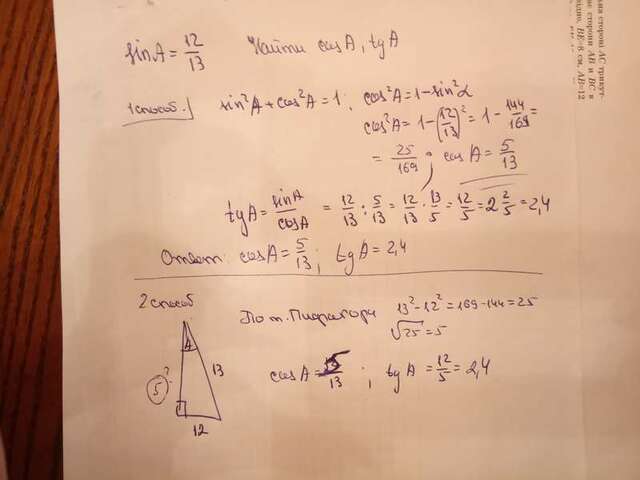 sin A = 12/13 Найти cos A, tg A
1 способ. sin²A + cos²A = 1; cos²A = 1 - sin²α
cos²A = 1 - (12/13)² = 1 - 144/169 =
= 25/169 cos A = 5/13
tg A = sin A/cos A = 12/13 : 5/13 = 12/13 · 13/5 = 12/5 = 2 2/5 = 2,4
Ответ: cos A = 5/13; tg A = 2,4
2 способ
По т. Пифагора 13² - 12² = 169 - 144 = 25
√25 = 5
A
5 ?
13
cos A = 5/13; tg A = 12/5 = 2,4
12
сторони AB и BC в
BE=8 см, AB=12